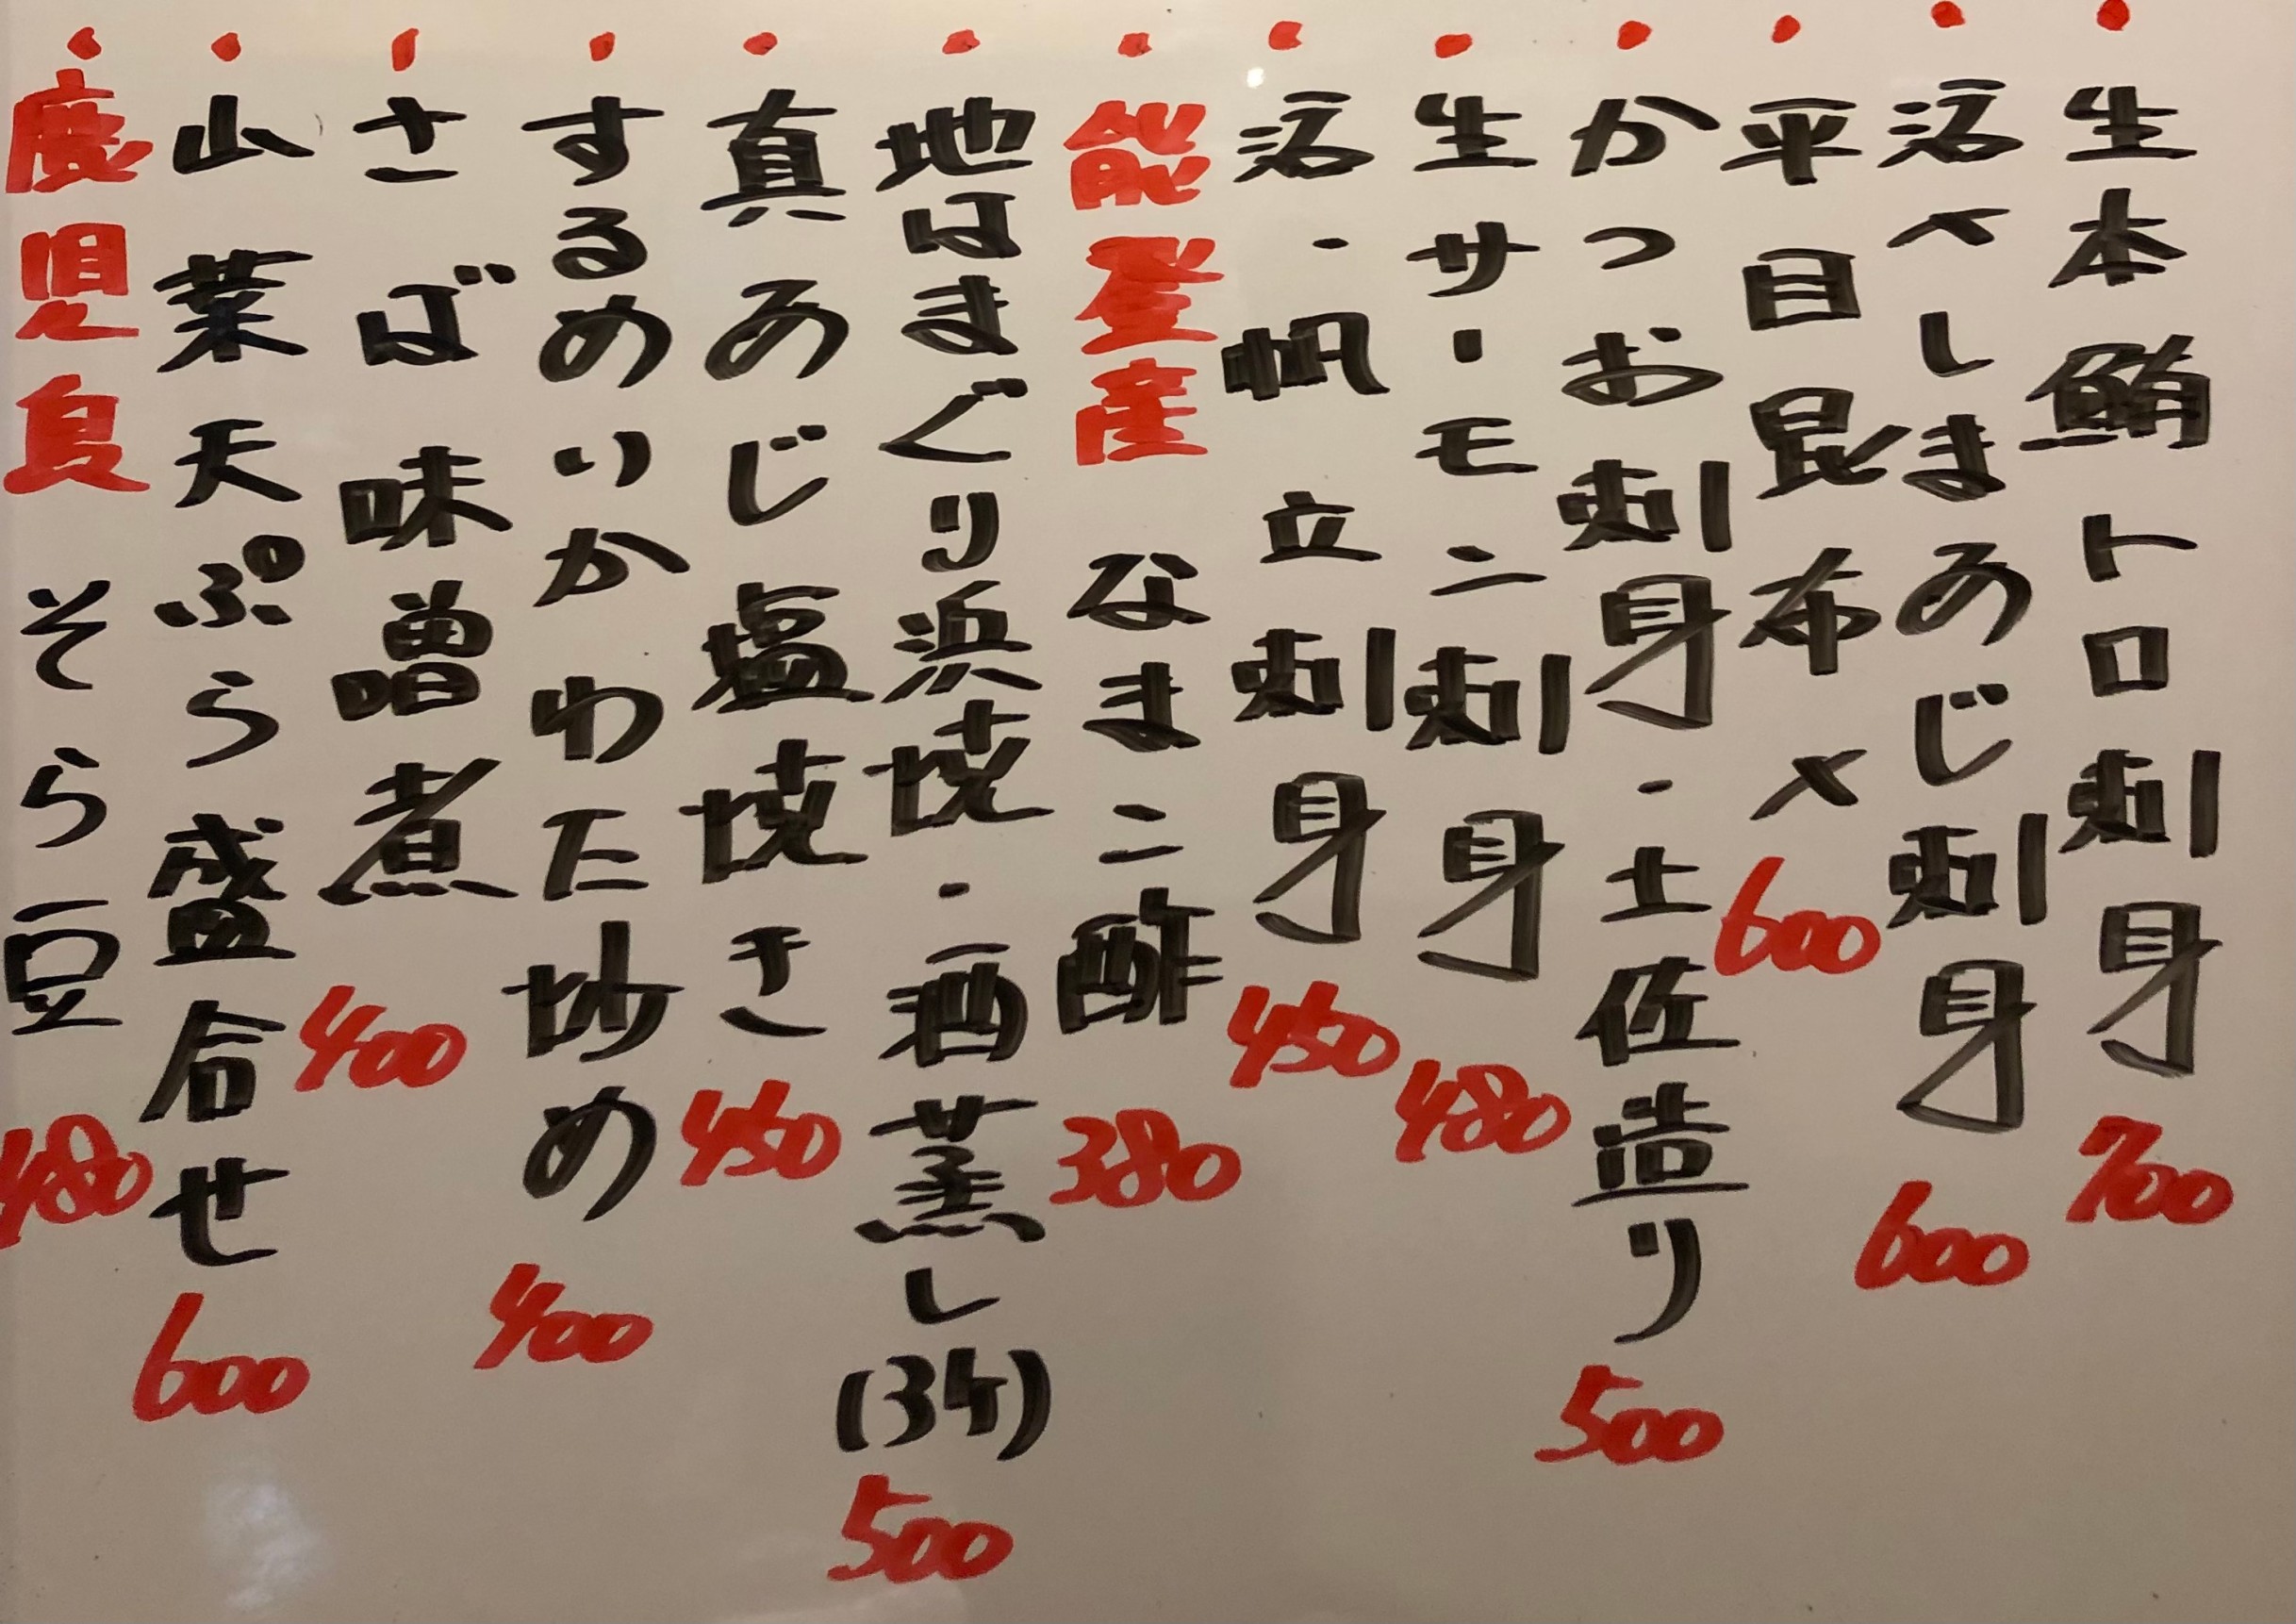 生本鮪トロ刺身 700
活〆しまあじ刺身 600
平目昆布〆 600
かつお刺身・土佐造り 500
生サーモン刺身 480
活・帆立刺身 450
能登産 なまこ酢 380
地はまぐり浜焼・酒蒸し(3ケ) 500
真あじ塩焼き 450
するめいかわた炒め 400
さば味噌煮 400
山菜天ぷら盛合せ 600
鹿児島 そら豆 480